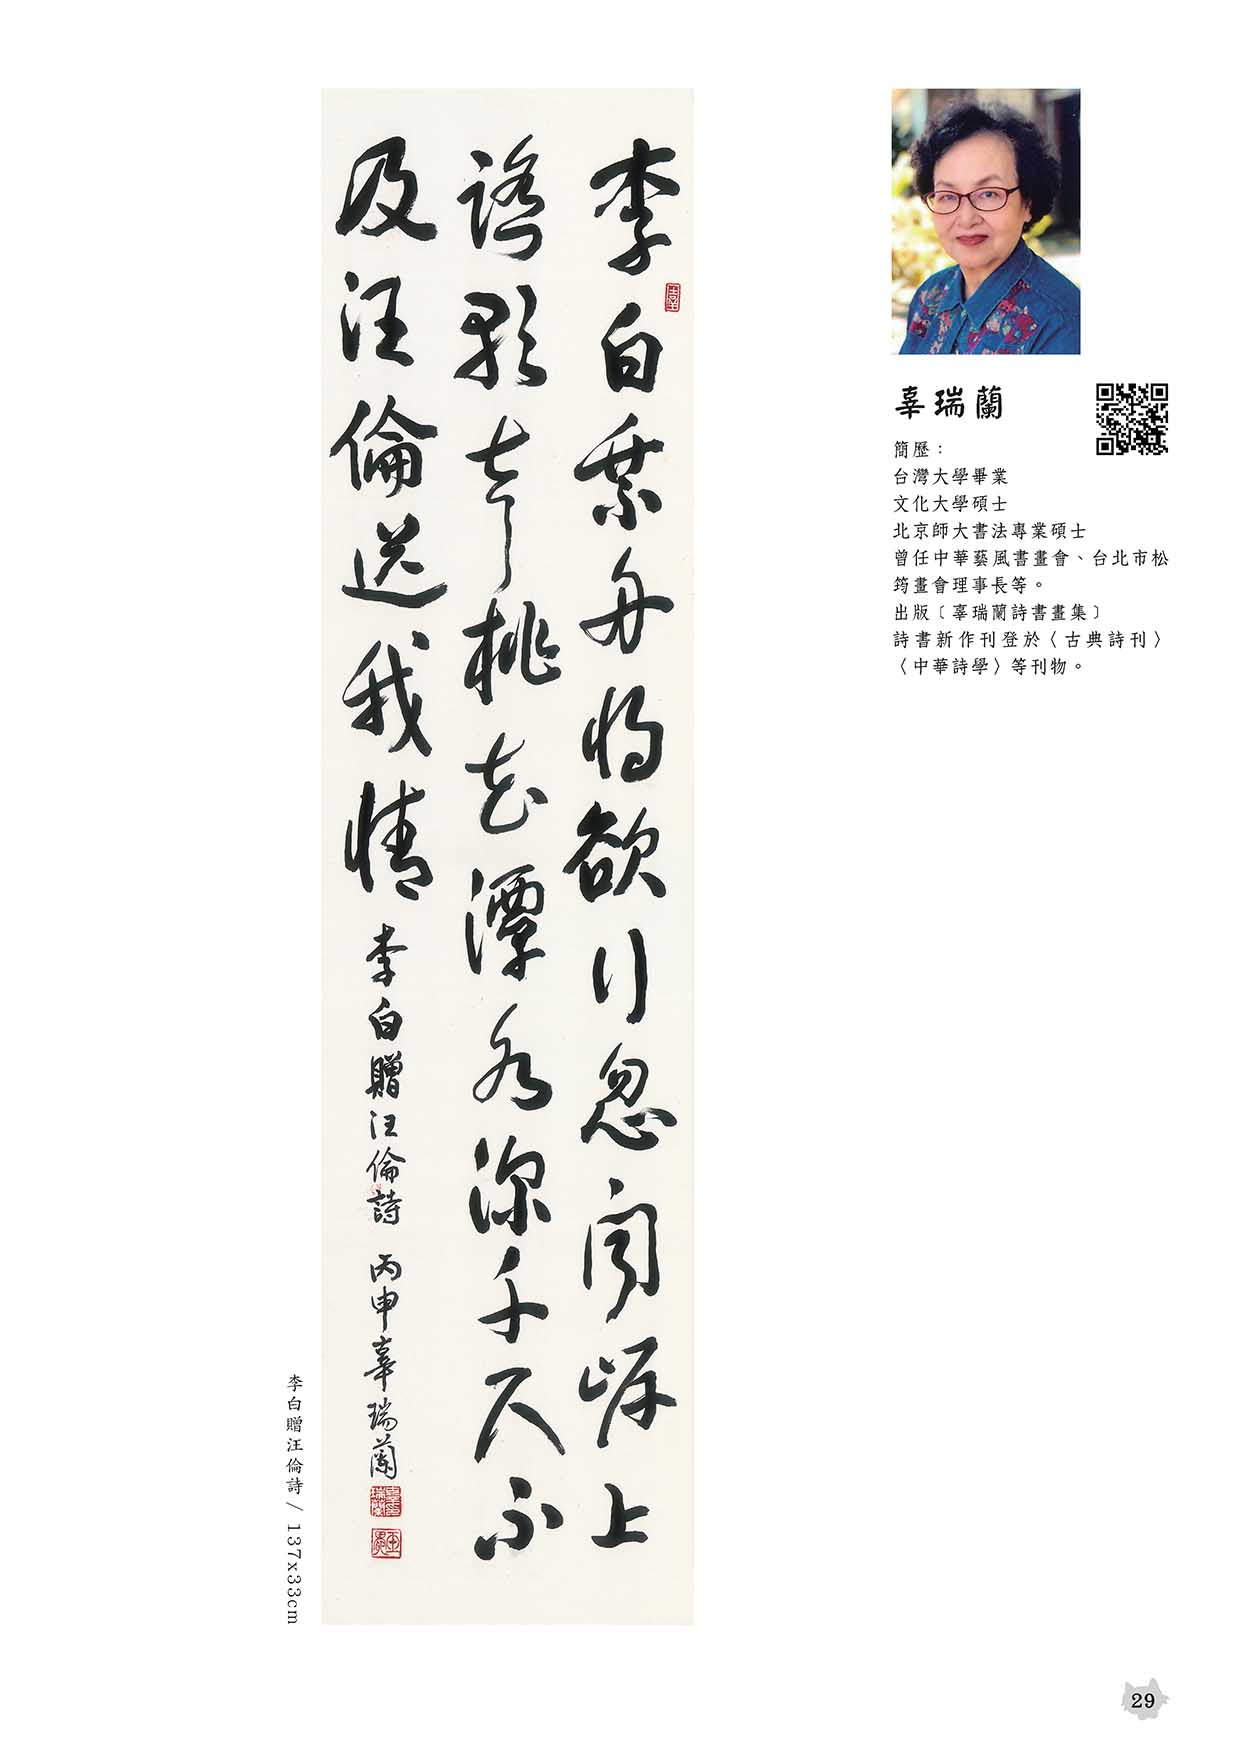 李白乘舟將欲行忽聞岸上
踏歌聲桃花潭水深千尺不
及汪倫送我情 李白贈汪倫詩 丙申辜瑞蘭
李白贈汪倫詩 / 137x33cm
辜瑞蘭
簡歷：
台灣大學畢業
文化大學碩士
北京師大書法專業碩士
曾任中華藝風書畫會、台北市松
筠畫會理事長等。
出版〔辜瑞蘭詩書畫集〕
詩書新作刊登於〈古典詩刊〉
〈中華詩學〉等刊物。
29